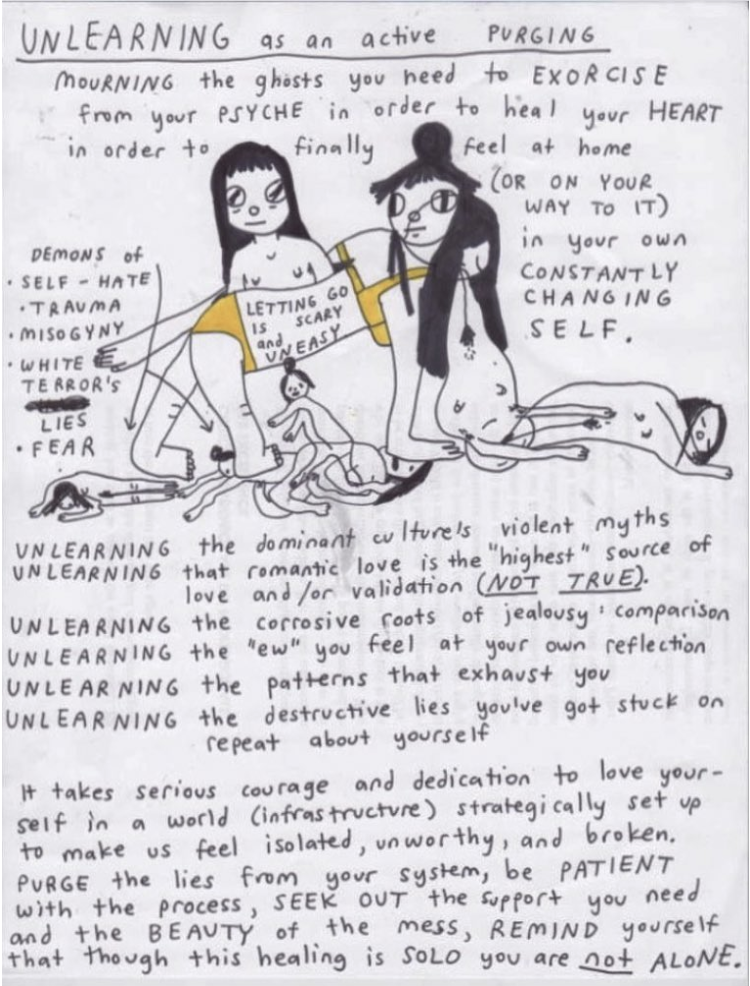 UNLEARNING as an active PURGING
MOURNING the ghosts you need to EXORCISE
from your PSYCHE in order to heal your HEART
in order to finally feel at home
(OR ON YOUR
WAY TO IT)
in your own
CONSTANTLY
CHANGING
SELF.
DEMONS of
• SELF-HATE
• TRAUMA
• MISOGYNY
• WHITE
TERROR'S
LIES
• FEAR
LETTING GO
IS SCARY
and
UNEASY
UNLEARNING the dominant culture's violent myths
UNLEARNING that romantic love is the "highest" source of
love and/or validation (NOT TRUE).
UNLEARNING the corrosive roots of jealousy : comparison
UNLEARNING the "ew" you feel at your own reflection
UNLEARNING the patterns that exhaust you
UNLEARNING the destructive lies you've got stuck on
repeat about yourself
It takes serious courage and dedication to love your-
self in a world (infrastructure) strategically set up
to make us feel isolated, unworthy, and broken.
PURGE the lies from your system, be PATIENT
with the process, SEEK OUT the support you need
and the BEAUTY of the mess, REMIND yourself
that though this healing is SOLO you are not ALONE.